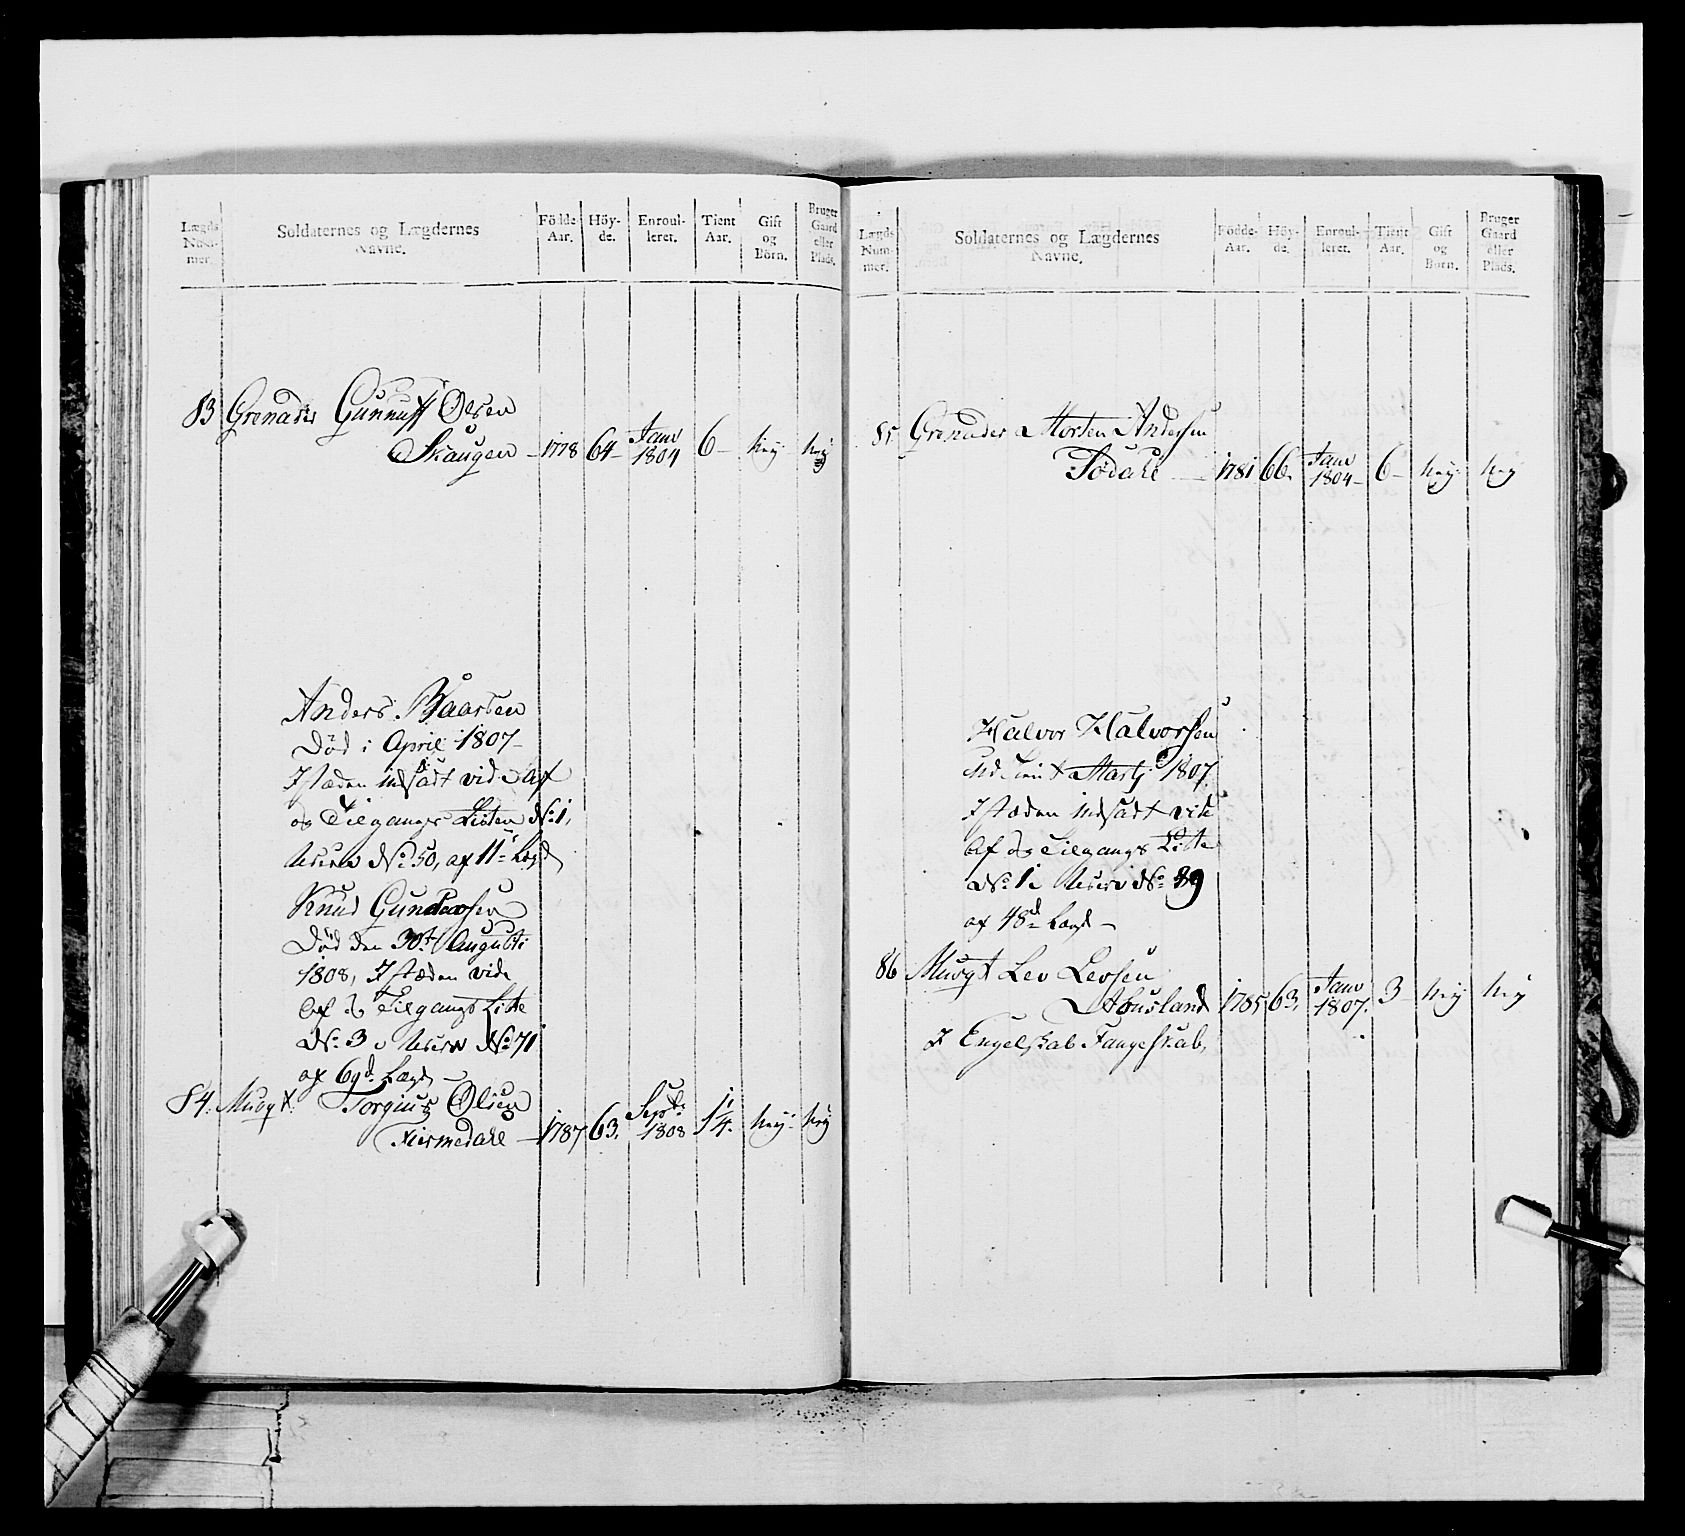 Lægds Num- mer. Soldaternes og Lægdernes Navne. Födde- Aar. Höy- de. Enroul- leret. Tient Aar. Gift og Börn. Bruger Gaard eller Plads.
83 Grenader Gunnuff Olsen
Skaugen – 1778 64 – Janv 1804 6 – Nej Nej
Anders Waarsen
Död i April 1807 –
I stæden indsadt vide Af
og Tilgangs Listen No 1,
No 50, af 11te Lægd
Knud Gundersen
Död den 30te Augusti
1808, I stæden vide
Af og Tilgangs Liste
No 3 No 71
af 69d Lægd –
84. Musqt. Torgius Olsen
– 1787 63. Septr 1808 1 1/4. Nej Nej
Lægds Num- mer. Soldaternes og Lægdernes Navne. Födde- Aar. Höy- de. Enroul- leret. Tient Aar. Gift og Börn. Bruger Gaard eller Plads.
85 Grenader Morten Andersen
Tödahl – 1781 66. Janv 1804 – 6 – Nej Nej
Halvor Halvorsen
Martj 1807
I stæden indsadt vide
Af og Tilgangs Liste
No 1 No 89
af 48d Lægd –
86 Musqt Lev Levsen
1785 63. Janv 1807. 3 – Nej Nej
I Engelskab Fangeskab,